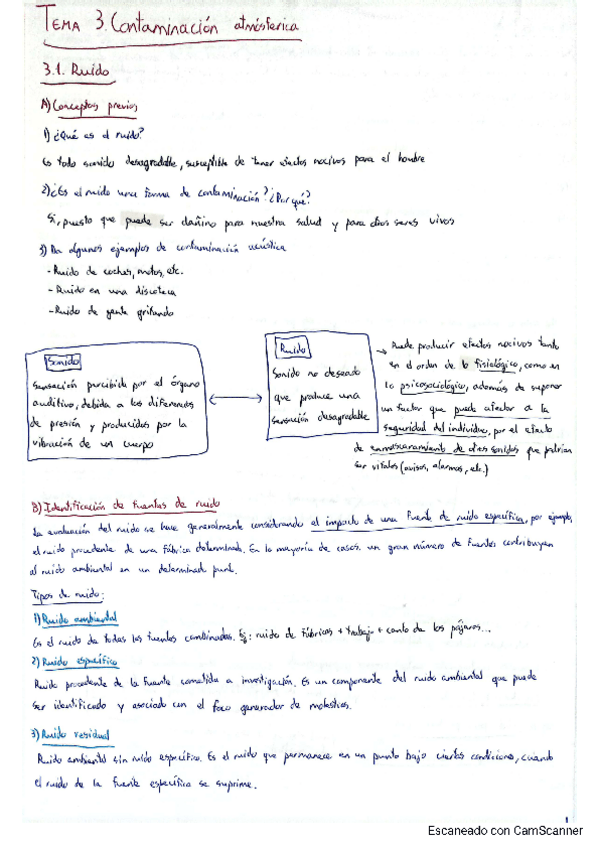 TEMA 3. Contaminación atmósferica
3.1. Ruido
A) Conceptos previos
1) ¿Qué es el ruido?
Es todo sonido desagradable, susceptible de tener efectos nocivos para el hombre
2) ¿Es el ruido una forma de contaminación? ¿Por qué?
Si, puesto que puede ser dañino para nuestra salud y para otros seres vivos
3) Da algunos ejemplos de contaminación acústica
- Ruido de coches, motos, etc.
- Ruido en una discoteca
- Ruido de gente gritando
Sonido
Sensación percibida por el órgano
auditivo, debida a las diferencias
de presión y producidos por la
vibración de un cuerpo
Ruido
Sonido no deseado
que produce una
sensación desagradable
→ Puede producir efectos nocivos tanto
en el orden de lo fisiológico, como en
lo psicosociológico, además de suponer
un factor que puede afectar a la
seguridad del individuo, por el efecto
de enmascaramiento de otros sonidos que podrían
ser vitales (avisos, alarmas, etc.)
B) Identificación de fuentas de ruido
La evaluación del ruido se hace generalmente considerando el impacto de una fuente de ruido específica, por ejemplo,
el ruido procedente de una fábrica determinada. En la mayoría de casos, un gran número de fuentes contribuyen
al ruido ambiental en un determinado punto.
Tipos de ruido:
1) Ruido ambiental
Es el ruido de todas las fuentes combinadas. Ej: ruido de fábricas + trabajo + canto de los pájaros...
2) Ruido específico
Ruido procedente de la fuente sometida a investigación. Es un componente del ruido ambiental que puede
ser identificado y asociado con el foco generador de molestias.
3) Ruido residual
Ruido ambiental sin ruido específico. Es el ruido que permanece en un punto bajo ciertas condiciones, cuando
el ruido de la fuente específica se suprime.
1
Escaneado con CamScanner